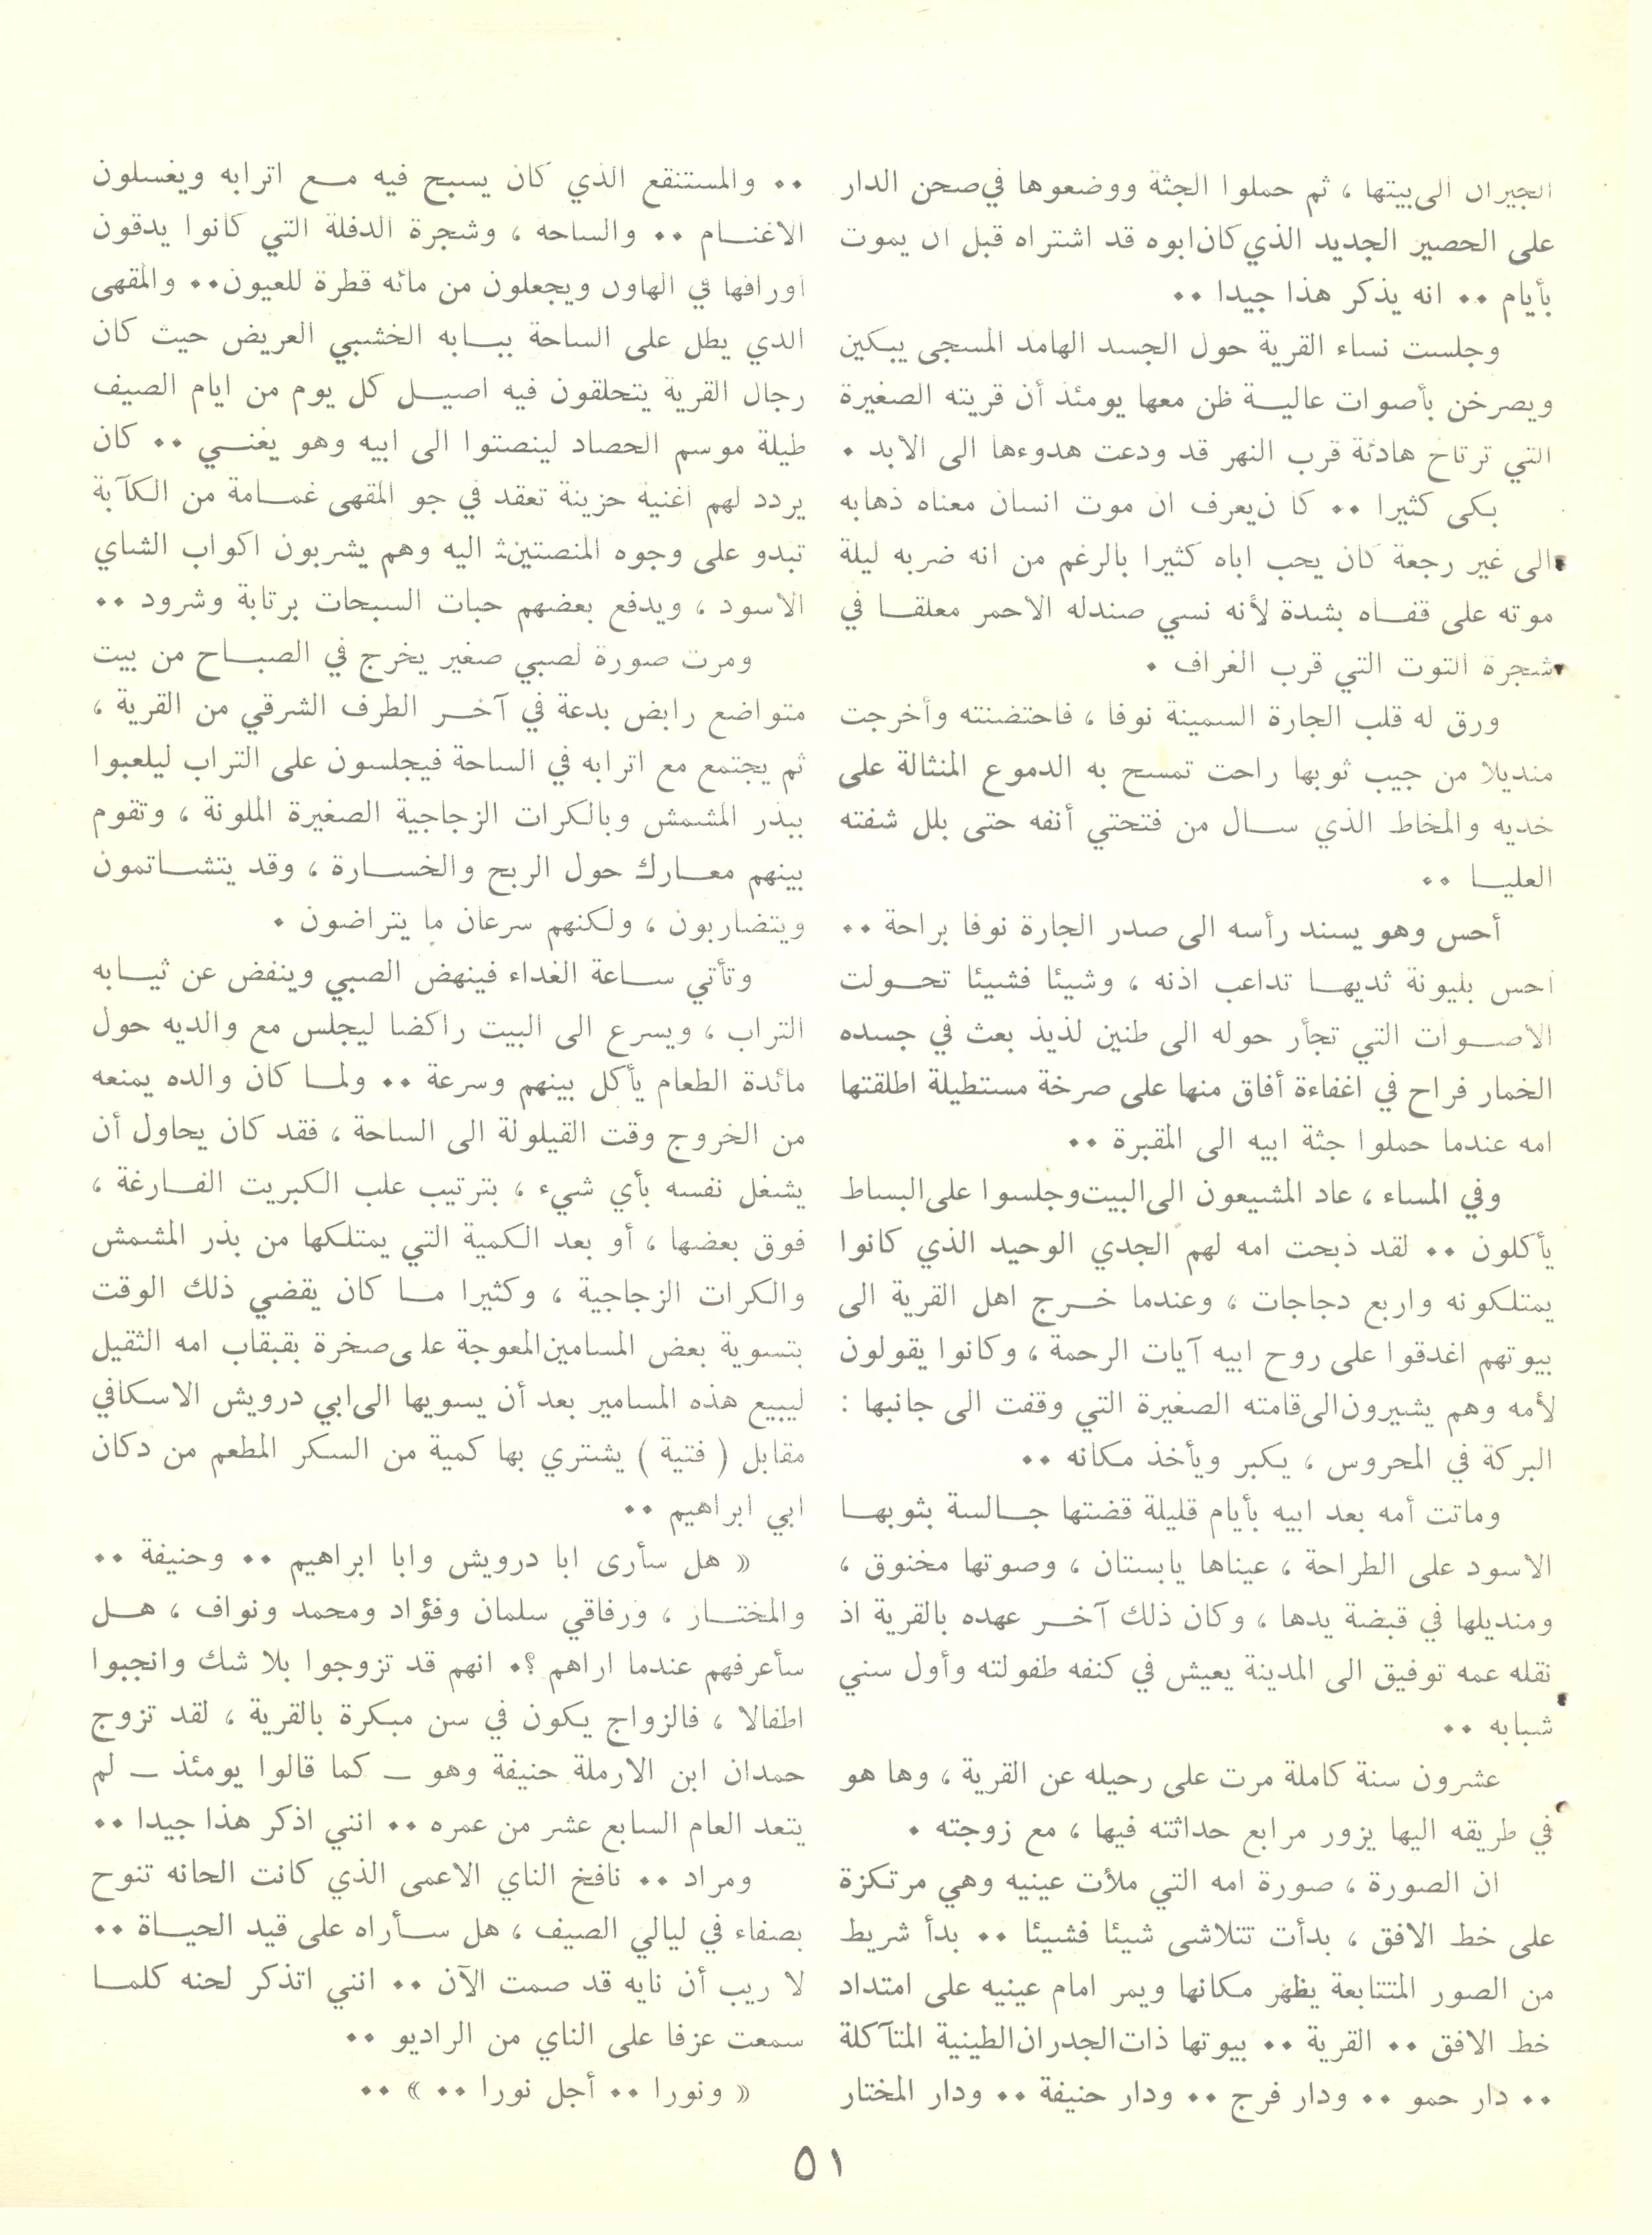 الجيران الى بيتها ، ثم حملوا الجثة ووضعوها في صحن الدار
على الحصير الجديد الذي كان ابوه قد اشتراه قبل ان يموت
بأيام .. انه يذكر هذا جيدا ..
وجلست نساء القرية حول الجسد الهامد المسجى يبكين
ويصرخن بأصوات عالية ظن معها يومئذ أن قريته الصغيرة
التي ترتاح هادئة قرب النهر قد ودعت هدوءها الى الابد .
بكى كثيرا .. كا ن يعرف ان موت انسان معناه ذهابه
الى غير رجعة كان يحب اباه كثيرا بالرغم من انه ضربه ليلة
موته على قفاه بشدة لأنه نسي صندله الاحمر معلقا في
شجرة التوت التي قرب الغراف .
ورق له قلب الجارة السمينة نوفا ، فاحتضنته وأخرجت
منديلا من جيب ثوبها راحت تمسح به الدموع المنثالة على
خديه والمخاط الذي سال من فتحتي أنفه حتى بلل شفته
العليا ..
أحس وهو يسند رأسه الى صدر الجارة نوفا براحة ..
احس بليونة ثديها تداعب اذنه ، وشيئا فشيئا تحولت
الاصوات التي تجأر حوله الى طنين لذيذ بعث في جسده
الخمار فراح في اغفاءة أفاق منها على صرخة مستطيلة اطلقتها
امه عندما حملوا جثة ابيه الى المقبرة ..
وفي المساء ، عاد المشيعون الى البيت وجلسوا على البساط
يأكلون .. لقد ذبحت امه لهم الجدي الوحيد الذي كانوا
يمتلكونه واربع دجاجات ، وعندما خرج اهل القرية الى
بيوتهم اغدقوا على روح ابيه آيات الرحمة ، وكانوا يقولون
لأمه وهم يشيرون الى قامته الصغيرة التي وقفت الى جانبها :
البركة في المحروس ، يكبر ويأخذ مكانه ..
وماتت أمه بعد ابيه بأيام قليلة قضتها جالسة بثوبها
الاسود على الطراحة ، عيناها يابستان ، وصوتها مخنوق ،
ومنديلها في قبضة يدها ، وكان ذلك آخر عهده بالقرية اذ
نقله عمه توفيق الى المدينة يعيش في كنفه طفولته وأول سني
شبابه ..
عشرون سنة كاملة مرت على رحيله عن القرية ، وها هو
في طريقه اليها يزور مرابع حداثته فيها ، مع زوجته .
ان الصورة ، صورة امه التي ملأت عينيه وهي مرتكزة
على خط الافق ، بدأت تتلاشى شيئا فشيئا .. بدأ شريط
من الصور المتتابعة يظهر مكانها ويمر امام عينيه على امتداد
خط الافق .. القرية .. بيوتها ذات الجدران الطينية المتآكلة
.. دار حمو .. ودار فرج .. ودار حنيفة .. ودار المختار
.. والمستنقع الذي كان يسبح فيه مع اترابه ويغسلون
الاغنام .. والساحه ، وشجرة الدفلة التي كانوا يدقون
اوراقها في الهاون ويجعلون من مائه قطرة للعيون.. والمقهى
الذي يطل على الساحة ببابه الخشبي العريض حيث كان
رجال القرية يتحلقون فيه اصيل كل يوم من ايام الصيف
طيلة موسم الحصاد لينصتوا الى ابيه وهو يغني .. كان
يردد لهم اغنية حزينة تعقد في جو المقهى غمامة من الكآبة
تبدو على وجوه المنصتين اليه وهم يشربون اكواب الشاي
الاسود ، ويدفع بعضهم حبات السبحات برتابة وشرود ..
ومرت صورة لصبي صغير يخرج في الصباح من بيت
متواضع رابض بدعة في آخر الطرف الشرقي من القرية ،
ثم يجتمع مع اترابه في الساحة فيجلسون على التراب ليلعبوا
ببذر المشمش وبالكرات الزجاجية الصغيرة الملونة ، وتقوم
بينهم معارك حول الربح والخسارة ، وقد يتشاتمون
ويتضاربون ، ولكنهم سرعان ما يتراضون .
وتأتي ساعة الغداء فينهض الصبي وينفض عن ثيابه
التراب ، ويسرع الى البيت راكضا ليجلس مع والديه حول
مائدة الطعام يأكل بينهم وسرعة .. ولما كان والده يمنعه
من الخروج وقت القيلولة الى الساحة ، فقد كان يحاول أن
يشغل نفسه بأي شيء ، بترتيب علب الكبريت الفارغة ،
فوق بعضها ، أو بعد الكمية التي يمتلكها من بذر المشمش
والكرات الزجاجية ، وكثيرا ما كان يقضي ذلك الوقت
بتسوية بعض المسامين المعوجة على صخرة بقبقاب امه الثقيل
ليبيع هذه المسامير بعد أن يسويها الى ابي درويش الاسكافي
مقابل ( فتية ) يشتري بها كمية من السكر المطعم من دكان
ابي ابراهيم ..
« هل سأرى ابا درويش وابا ابراهيم .. وحنيفة ..
والمختار ، ورفاقي سلمان وفؤاد ومحمد ونواف ، هل
سأعرفهم عندما اراهم ؟. انهم قد تزوجوا بلا شك وانجبوا
اطفالا ، فالزواج يكون في سن مبكرة بالقرية ، لقد تزوج
حمدان ابن الارملة حنيفة وهو – كما قالوا يومئذ – لم
يتعد العام السابع عشر من عمره .. انني اذكر هذا جيدا ..
ومراد .. نافخ الناي الاعمى الذي كانت الحانه تنوح
بصفاء في ليالي الصيف ، هل سأراه على قيد الحياة ..
لا ريب أن نايه قد صمت الآن .. انني اتذكر لحنه كلما
سمعت عزفا على الناي من الراديو ..
« ونورا .. أجل نورا .. » ..
٥١